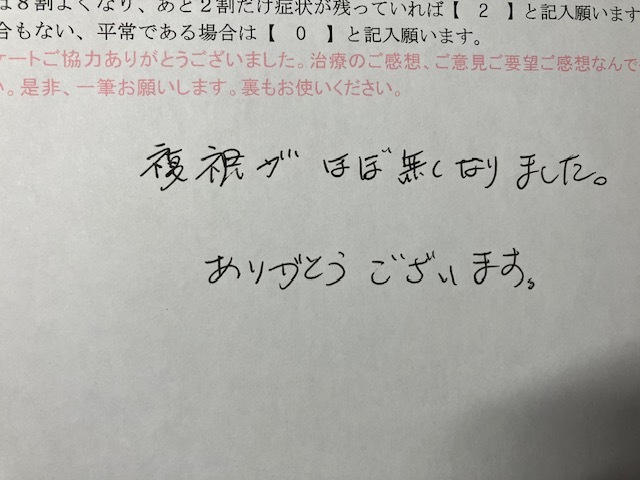 は8割よくなり、あと2割だけ症状が残っていれば【 2 】と記入願います
合もない、平常である場合は【 0 】と記入願います。
ケートご協力ありがとうございました。治療のご感想、ご意見ご要望ご感想なんで
い。是非、一筆お願いします。裏もお使いください。
複視が ほぼ無くなりました。
ありがとう ございます。